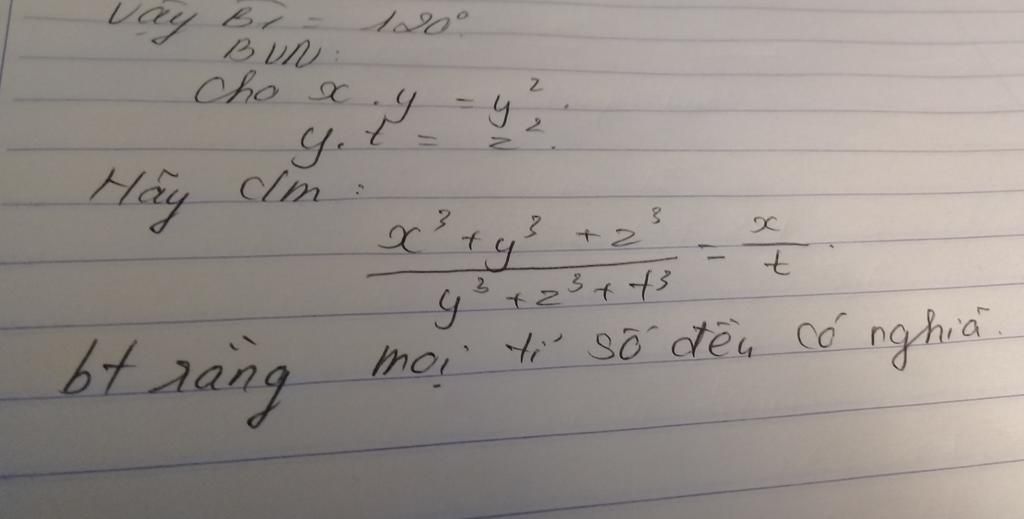 Vậy B1 = 120°.
BVN:
Cho x . y = y².
y. t = z².
Hãy c/m :
x³ + y³ + z³ / y³ + z³ + t³ = x / t .
bt rằng mọi tỉ số đều có nghiã.